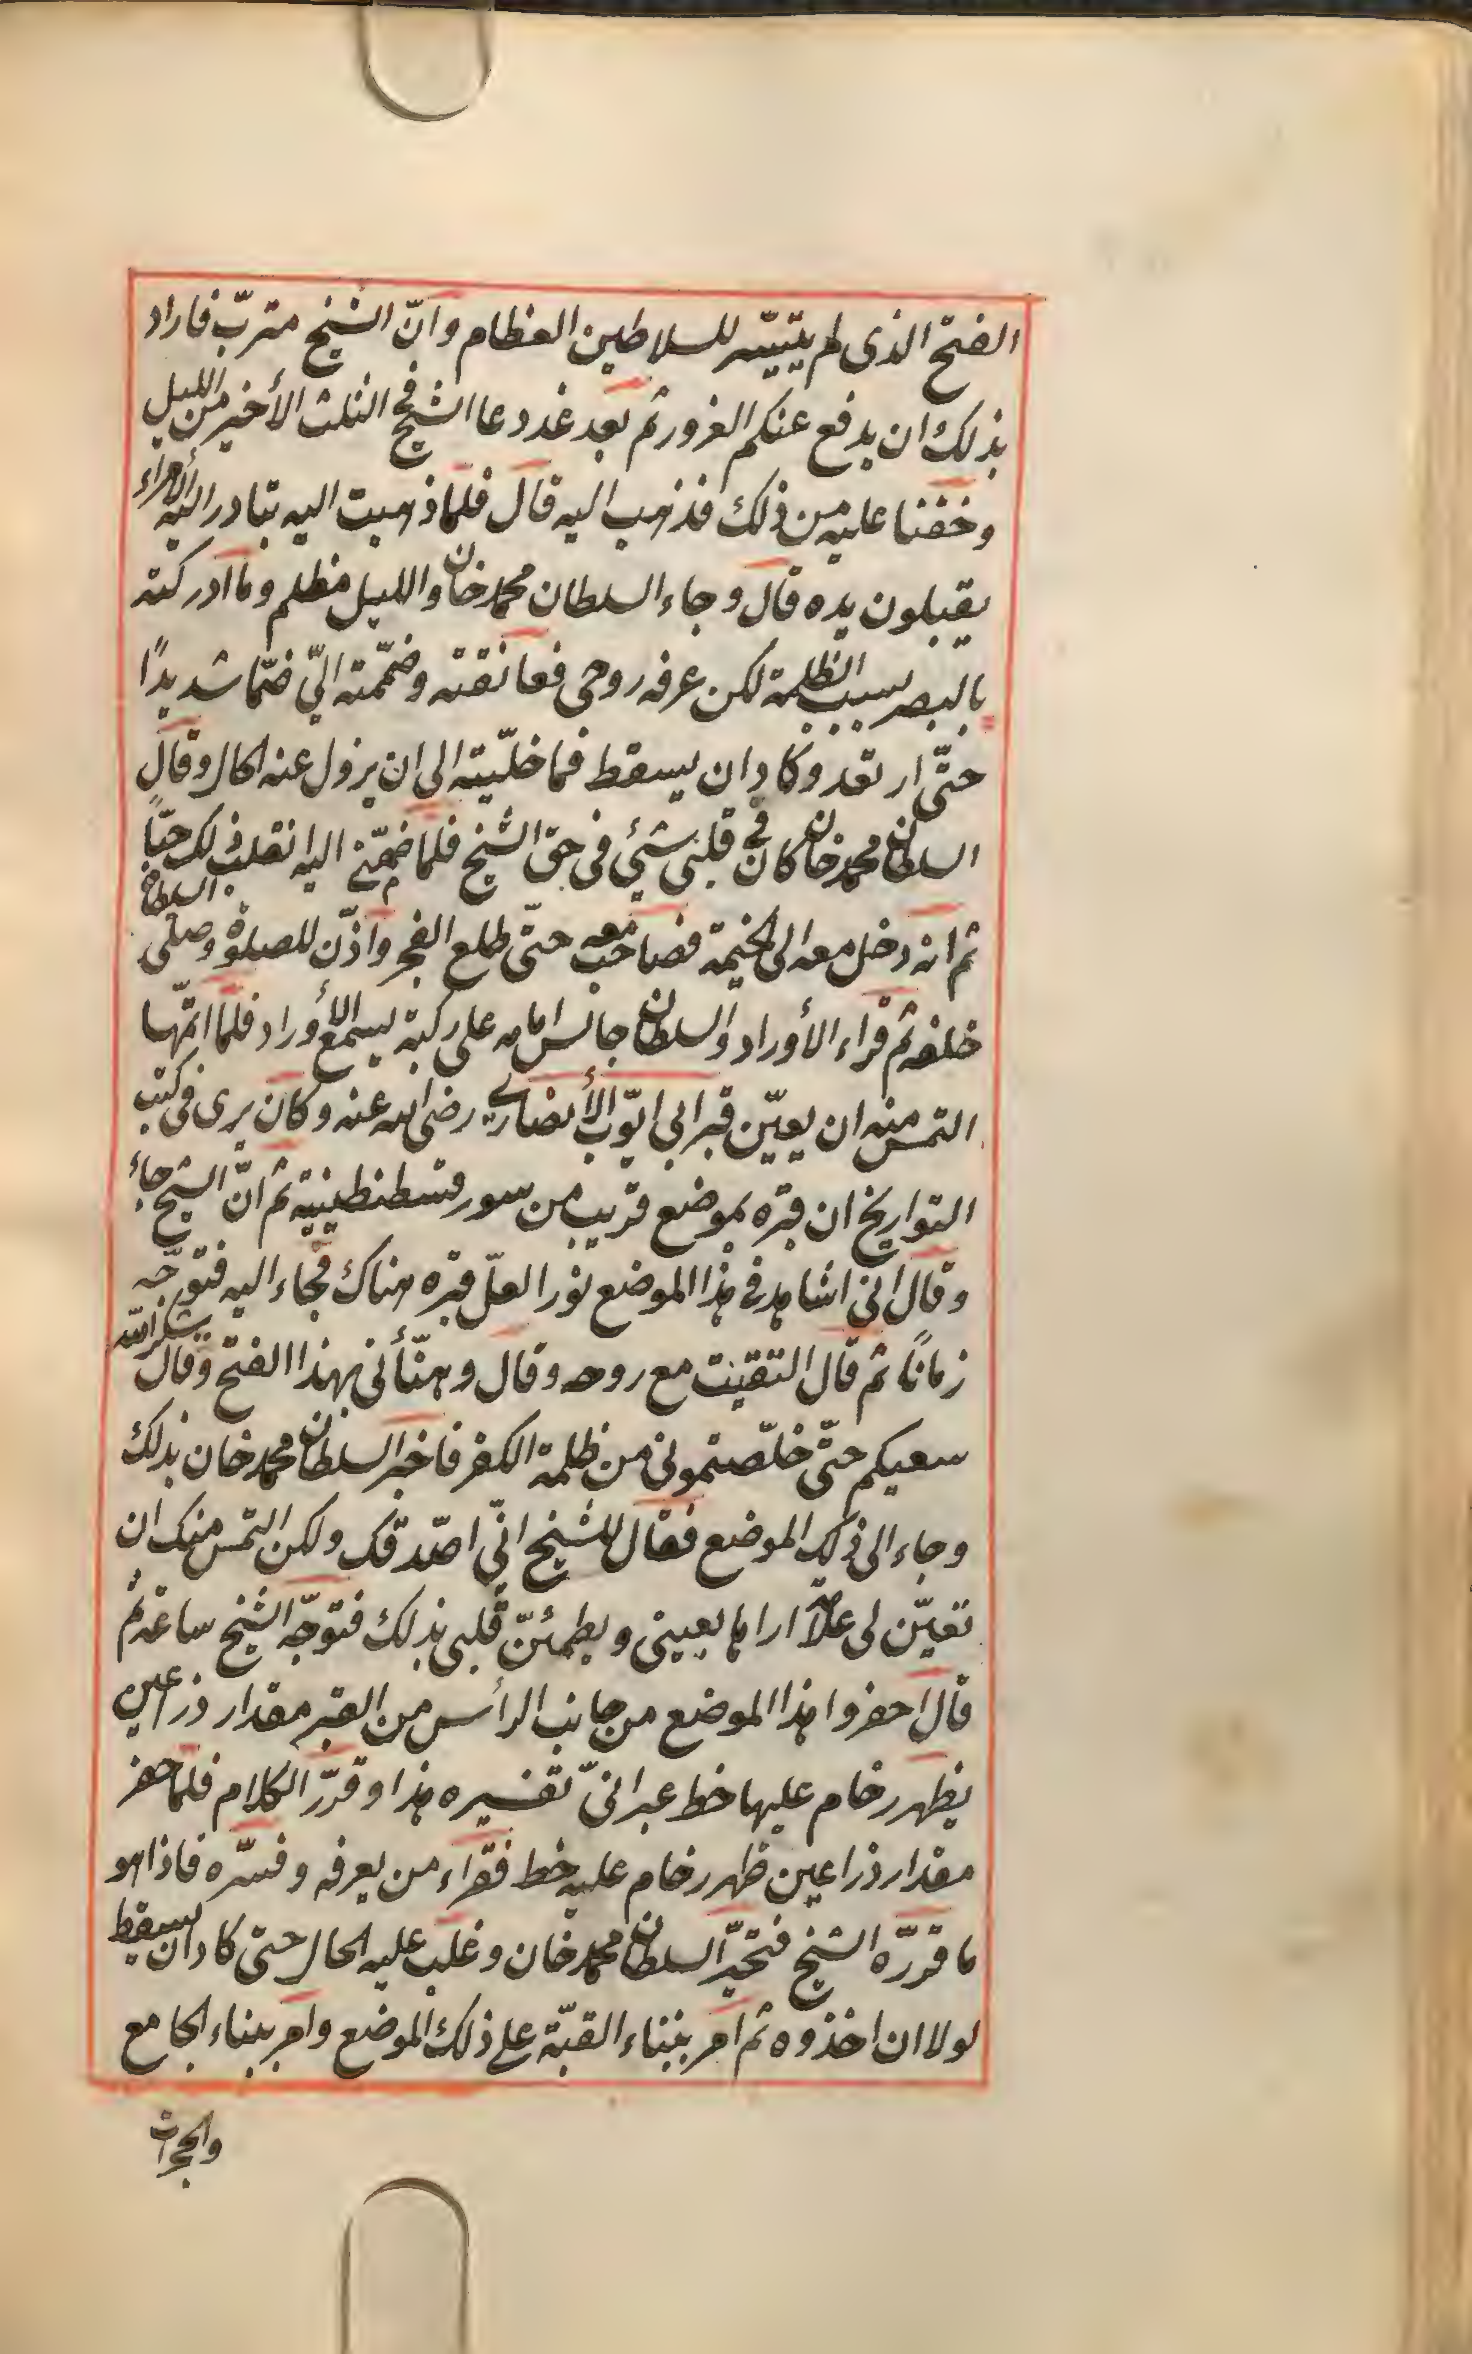 الفتح الذى لم يتيسّر للسلاطين العظام وانّ الشيخ متربّ فاراد
بذلك ان يدفع عنكم الغرور ثم بعد غد دعا الشيخ فى الثلث الأخير من الليل
وخفنا عليه من ذلك فذهب اليه قال فلمّا ذهبت اليه تبادر اليه الأمراء
يقبلون يده قال وجاء السلطان محمد خان والليل مظلم وما ادركته
بالبصر بسبب الظلمة لكن عرفه روحى فعانقته وضمّمته اليّ ضمّا شديدًا
حتّى ارتعد وكاد ان يسقط فما خلّيته الى ان يزول عنه الحال وقال
السلطان محمد خان كان فى قلبى شئ فى حقّ الشيخ فلمّا ضمّنى اليه انقلب ذلك حبّاً
ثم انه دخل معه الى الخيمة فصاحب معه حتّى طلع الفجر واذّن للصلوة وصلّى السلطان
خلفه ثم قراء الأوراد والسلطان جالس امامه على ركبة يسمع الأوراد فلمّا اتمّها
التمس منه ان يعيّن قبر ابى ايّوب الأنصارى رضى الله عنه وكان يرى فى كتب
التواريخ ان قبره بموضع قريب من سور قسطنطينية ثم انّ الشيخ جاء
وقال انى اشاهد فى هذا الموضع نورا لعلّ قبره هناك فجاء اليه فتوجّه
زمانًا ثم قال التقيت مع روحه وقال وهنّأنى بهذا الفتح وقال شكر الله
سعيكم حتّى خلّصتمونى من ظلمة الكفر فاخبر السلطان محمد خان بذلك
وجاء الى ذلك الموضع فقال للشيخ انّى اصدّقك ولكن التمس منك ان
تعيّن لى علامة اراها بعينى ويطمئنّ قلبى بذلك فتوجّه الشيخ ساعة ثم
قال احفروا هذا الموضع من جانب الرأس من القبر مقدار ذراعين
يظهر رخام عليها خط عبرانىّ تفسيره هذا وقرّر الكلام فلمّا حفر
مقدار ذراعين ظهر رخام عليه خط فقراء من يعرفه وفسّره فاذا هو
ما قررّه الشيخ فتحيّر السلطان محمد خان وغلب عليه الحال حتى كاد ان يسقط
لولا ان اخذوه ثم امر ببناء القبّة على ذلك الموضع وامر ببناء الجامع
والحجرات